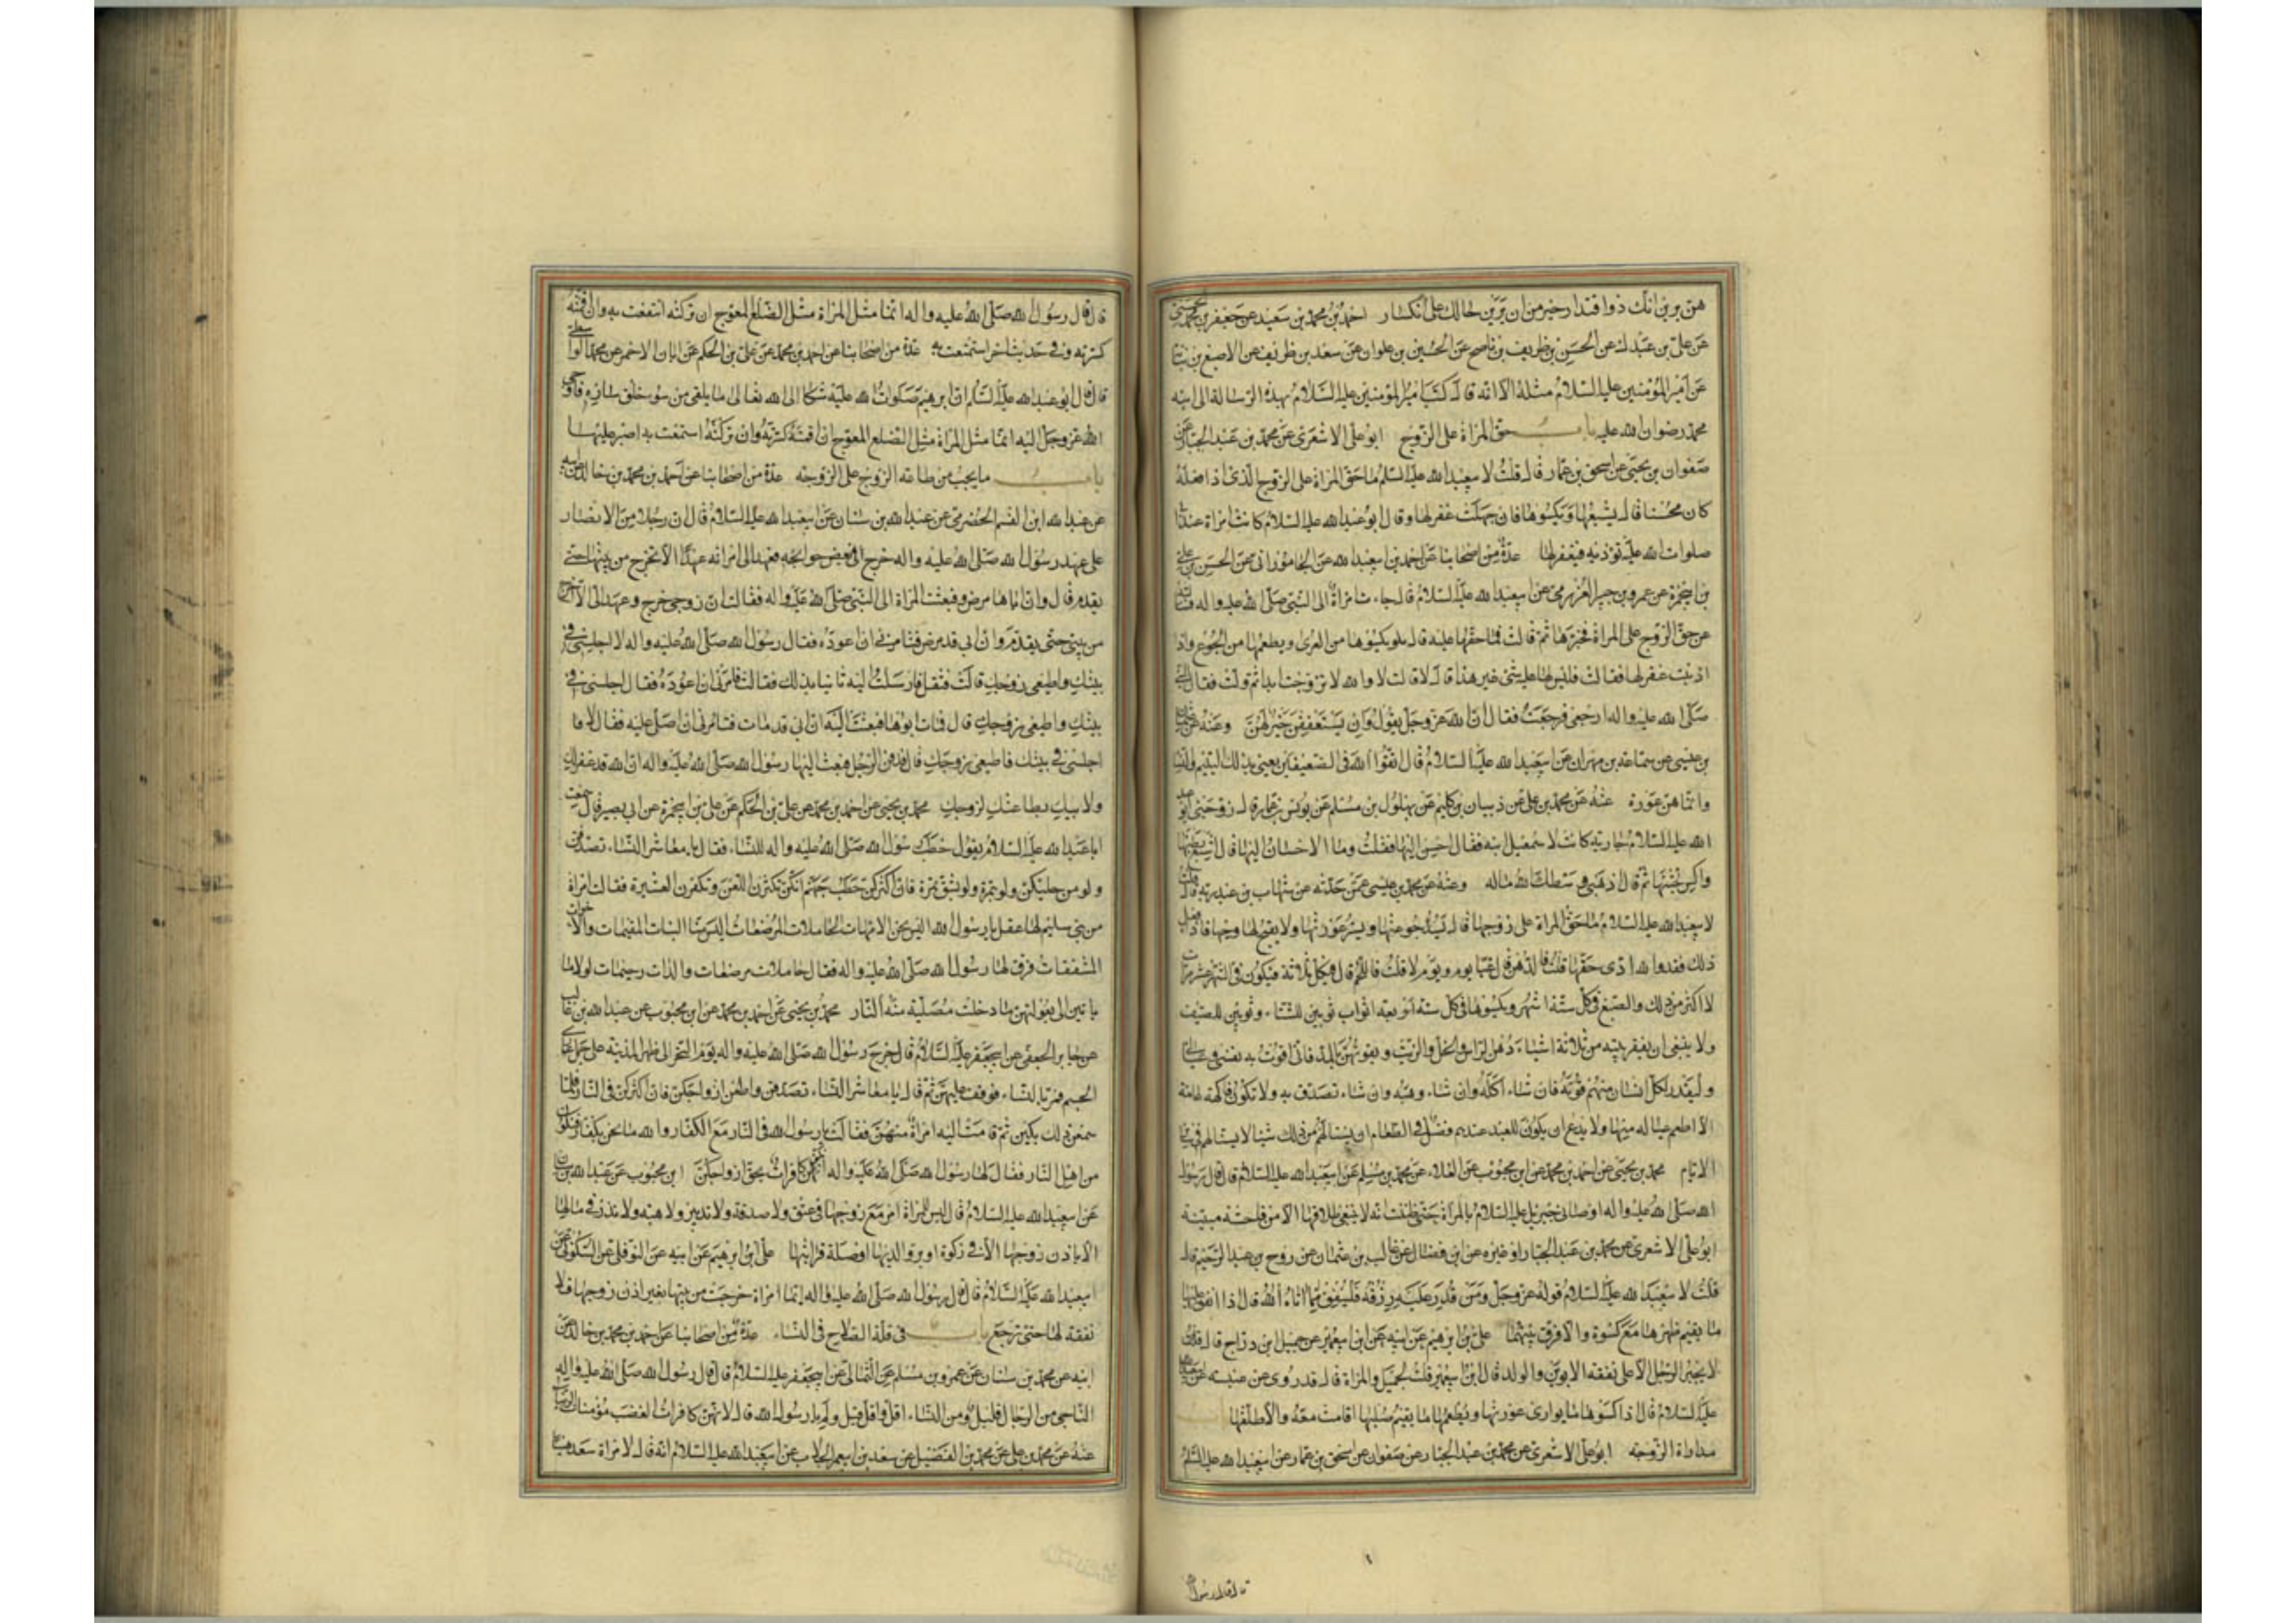 هن يرين انك ذو اقتدار خير من ان يرين حالك على انكسار احمد بن محمد بن سعيد عن جعفر بن محمد الحسنى
عن على بن عبدك عن الحسن بن ظريف بن ناصح عن الحسين بن علوان عن سعد بن ظريف عن الاصبغ بن نباتة
عن امير المؤمنين عليه السلام مثله الا انه قال كتب امير المؤمنين عليه السلام بهذه الرسالة الى ابنه
محمد رضوان الله عليه باب حق المراة على الزوج ابو على الاشعرى عن محمد بن عبد الجبار عن
صفوان بن يحيى عن اسحق بن عمار قال قلت لابيعبد الله عليه السلم ما حق المراة على الزوج الذى اذا فعله
كان محسنا قال يشبعها ويكسوها فان جهلت غفر لها وقال ابو عبد الله عليه السلام كانت امراة عند ابى
صلوات الله عليه تؤذيه فيغفر لها عدة من اصحابنا عن احمد بن ابيعبد الله عن الجامورانى عن الحسن بن على
بن ابيحمزة عن عمرو بن جبير العزرمى عن ابيعبد الله عليه السلام قال جاءت امراة الى النبى صلى الله عليه واله فسالته
عن حق الزوج على المراة فخبرها ثم قالت فما حقها عليه قال يكسوها من العرى ويطعمها من الجوع واذا
اذنبت غفر لها فقالت فليس لها عليه شئ غير هذا قال لا قالت لا والله لا تزوجت ابدا ثم ولت فقال النبى
صلى الله عليه واله ارجعى فرجعت فقال ان الله عز وجل يقول وان يستعففن خير لهن وعنه عن عثمان
بن عيسى عن سماعة بن مهران عن ابيعبد الله عليه السلام قال اتقوا الله فى الضعيفين يعنى بذلك اليتيم والنساء
وانما هن عورة عنه عن محمد بن على عن ذبيان بن حكيم عن بهلول بن مسلم عن يونس بن عمار قال زوجنى ابو عبد
الله عليه السلام جارية كانت لاسمعيل ابنه فقال احسن اليها فقلت وما الاحسان اليها قال اشبع بطنها
واكس جثتها ثم قال اذهبى وسطك الله ماله وعنه عن محمد بن عيسى عمن حدثه عن شهاب بن عبد ربه قال قلت
لابيعبد الله عليه السلام ما حق المراة على زوجها قال يسد جوعتها ويستر عورتها ولا يقبح لها وجها فاذا فعل
ذلك فقد والله ادى حقها قلت فالدهن قال غبا يوم ويوم لا قلت فاللحم قال فى كل ثلاثة فيكون فى الشهر عشر مرات
لا اكثر من ذلك والصبغ فى كل ستة اشهر ويكسوها فى كل سنة اربعة اثواب ثوبين للشتاء وثوبين للصيف
ولا ينبغى ان يفقر بيته من ثلاثة اشياء دهن الراس والخل والزيت ويقوتهن بالمد فانى اقوت به نفسى وعيالى
وليقدر لكل انسان منهم قوته فان شاء اكله وان شاء وهبه وان شاء تصدق به ولا تكون فاكهة عامة
الا اطعم عياله منها ولا يدع ان يكون للعيد عندهم فضل فى الطعام ان يسنى لهم من ذلك شيئا لا يسنى لهم فى سائر
الايام محمد بن يحيى عن احمد بن محمد عن ابن محبوب عن العلاء عن محمد بن مسلم عن ابيعبد الله عليه السلام قال قال رسول
الله صلى الله عليه واله اوصانى جبرئيل عليه السلام بالمراة حتى ظننت انه لا ينبغى طلاقها الا من فاحشة مبينة
ابو على الاشعرى عن محمد بن عبد الجبار او غيره عن ابن فضال عن غالب بن عثمان عن روح بن عبد الرحيم قال
قلت لابيعبد الله عليه السلام قوله عز وجل ومن قدر عليه رزقه فلينفق مما اتاه الله قال اذا انفق عليها
ما يقيم ظهرها مع كسوة والا فرق بينهما على بن ابرهيم عن ابيه عن ابن ابيعمير عن جميل ابن دراج قال
لا يجبر الرجل الا على نفقة الابوين والولد قال ابن ابيعمير قلت لجميل والمراة قال قد روى عن عنبسة عن ابيعبد الله
عليه السلام قال اذا كسوها ما يوارى عورتها ويطعمها ما يقيم صلبها اقامت معه والا طلقها باب
مداراة الزوجة ابو على الاشعرى عن محمد بن عبد الجبار عن صفوان عن اسحق بن عمار عن ابيعبد الله عليه السلم
قال قال رسول
قال قال رسول الله صلى الله عليه واله انما مثل المراة مثل الضلع المعوج ان تركته انتفعت به وان اقمته
كسرته وفى حديث اخر استمتعت به عدة من اصحابنا عن احمد بن محمد عن على بن الحكم عن ابان الاحمر عن محمد الواسطى
قال قال ابو عبد الله عليه السلم ان ابرهيم صلوات الله عليه شكا الى الله تعالى ما يلقى من سوء خلق سارة فاوحى
الله عز وجل اليه انما مثل المراة مثل الضلع المعوج ان اقمته كسرته وان تركته استمتعت به اصبر عليها
باب ما يجب من طاعة الزوج على الزوجة عدة من اصحابنا عن احمد بن محمد بن خالد عن ابيه
عن عبد الله ابن القسم الحضرمى عن عبد الله بن سنان عن ابيعبد الله عليه السلام قال ان رجلا من الانصار
على عهد رسول الله صلى الله عليه واله خرج فى بعض حوائجه فعهد الى امراته عهدا الا تخرج من بيتها حتى
يقدم قال وان اباها مرض فبعثت المراة الى النبى صلى الله عليه واله فقالت ان زوجى خرج وعهد الى الا اخرج
من بيتى حتى يقدم وان ابى قد مرض فتامرنى ان اعوده فقال رسول الله صلى الله عليه واله لا اجلسى فى
بيتك واطيعى زوجك قالت فثقل فارسلت اليه ثانيا بذلك فقالت فتامرنى ان اعوده فقال اجلسى فى
بيتك واطيعى زوجك قال فمات ابوها فبعثت اليه ان ابى قد مات فتامرنى ان اصلى عليه فقال لا
اجلسى فى بيتك واطيعى زوجك قال فدفن الرجل فبعث اليها رسول الله صلى الله عليه واله ان الله قد غفر لك
ولابيك بطاعتك لزوجك محمد بن يحيى عن احمد بن محمد عن على بن الحكم عن على بن ابيحمزة عن ابى بصير قال سمعت
ابا عبد الله عليه السلام يقول خطب رسول الله صلى الله عليه واله النساء فقال يا معاشر النساء تصدقن
ولو من حليكن ولو بتمرة ولو بشق تمرة فان اكثركن حطب جهنم انكن تكثرن اللعن وتكفرن العشيرة فقالت امراة
من بنى سليم لها عقل يا رسول الله اليس نحن الامهات الحاملات المرضعات اليس منا البنات المقيمات والاخوات
المشفقات فرق لها رسول الله صلى الله عليه واله فقال حاملات مرضعات والدات رحيمات لولا ما
ياتين الى بعولتهن ما دخلت مصلية منهن النار محمد بن يحيى عن احمد بن محمد عن ابن محبوب عن عبد الله بن غالب
عن جابر الجعفى عن ابيجعفر عليه السلام قال خرج رسول الله صلى الله عليه واله يوم النحر الى ظهر المدينة على جمل عارى
الجسم فمر بالنساء فوقف عليهن ثم قال يا معاشر النساء تصدقن واطعن ازواجكن فان اكثركن فى النار فلما
سمعن ذلك بكين ثم قامت اليه امراة منهن فقالت يا رسول الله فى النار مع الكفار والله ما نحن بكفار فنكون
من اهل النار فقال لها رسول الله صلى الله عليه واله انكن كافرات بحق ازواجكن ابن محبوب عن عبد الله بن سنان
عن ابيعبد الله عليه السلام قال ليس للمراة امر مع زوجها فى عتق ولا صدقة ولا تدبير ولا هبة ولا نذر فى مالها
الا باذن زوجها الا فى زكوة او بر والديها او صلة قرابتها على بن ابرهيم عن ابيه عن النوفلى عن السكونى عن
ابيعبد الله عليه السلام قال قال رسول الله صلى الله عليه واله ايما امراة خرجت من بيتها بغير اذن زوجها فلا
نفقة لها حتى ترجع باب فى قلة الصلاح فى النساء عدة من اصحابنا عن احمد بن محمد بن خالد عن
ابيه عن محمد بن سنان عن عمرو بن مسلم عن الثمالى عن ابيجعفر عليه السلام قال قال رسول الله صلى الله عليه واله
الناجى من الرجال قليل ومن النساء اقل واقل قيل ولم يا رسول الله قال لانهن كافرات الغضب مؤمنات الرضا
عنه عن محمد بن على عن محمد بن الفضيل عن سعد بن ابيعمر الجلاب عن ابيعبد الله عليه السلام انه قال لامراة سعد